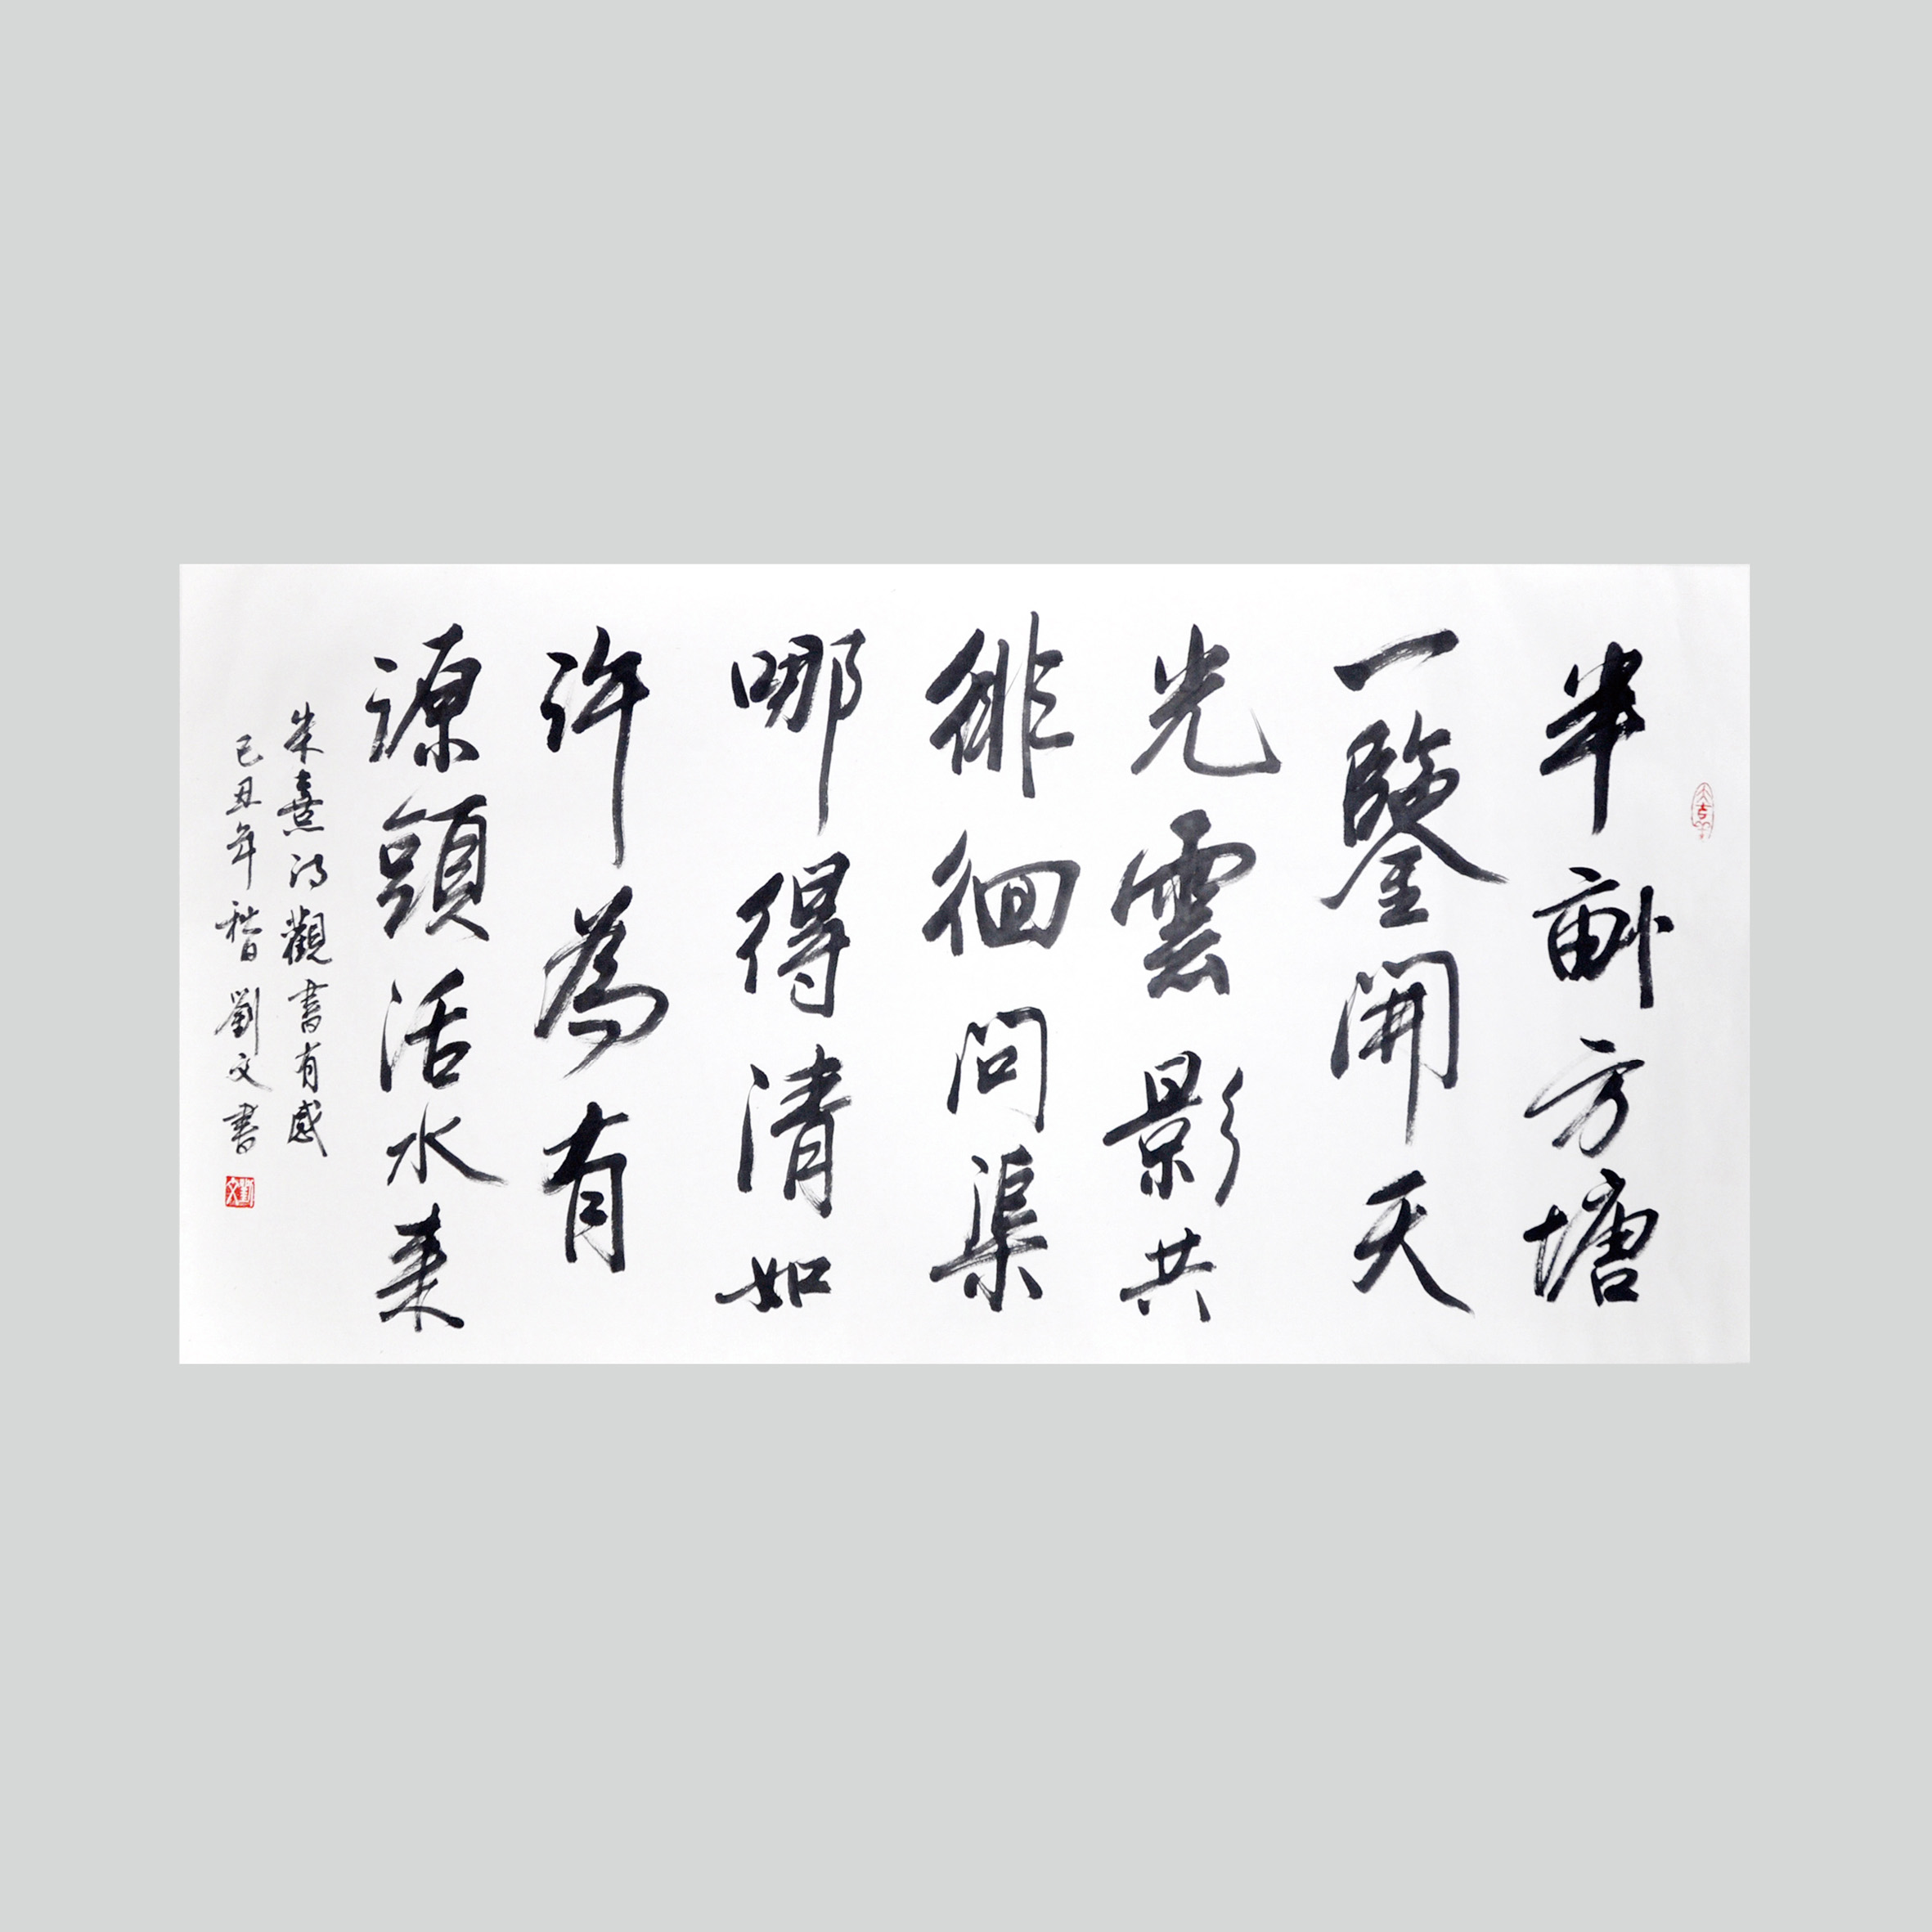 大吉羊
半畝方塘
一鑒開天
光雲影共
徘徊問渠
哪得清如
許為有
源頭活水来
朱熹詩觀書有感
己丑年 劉文書
劉文